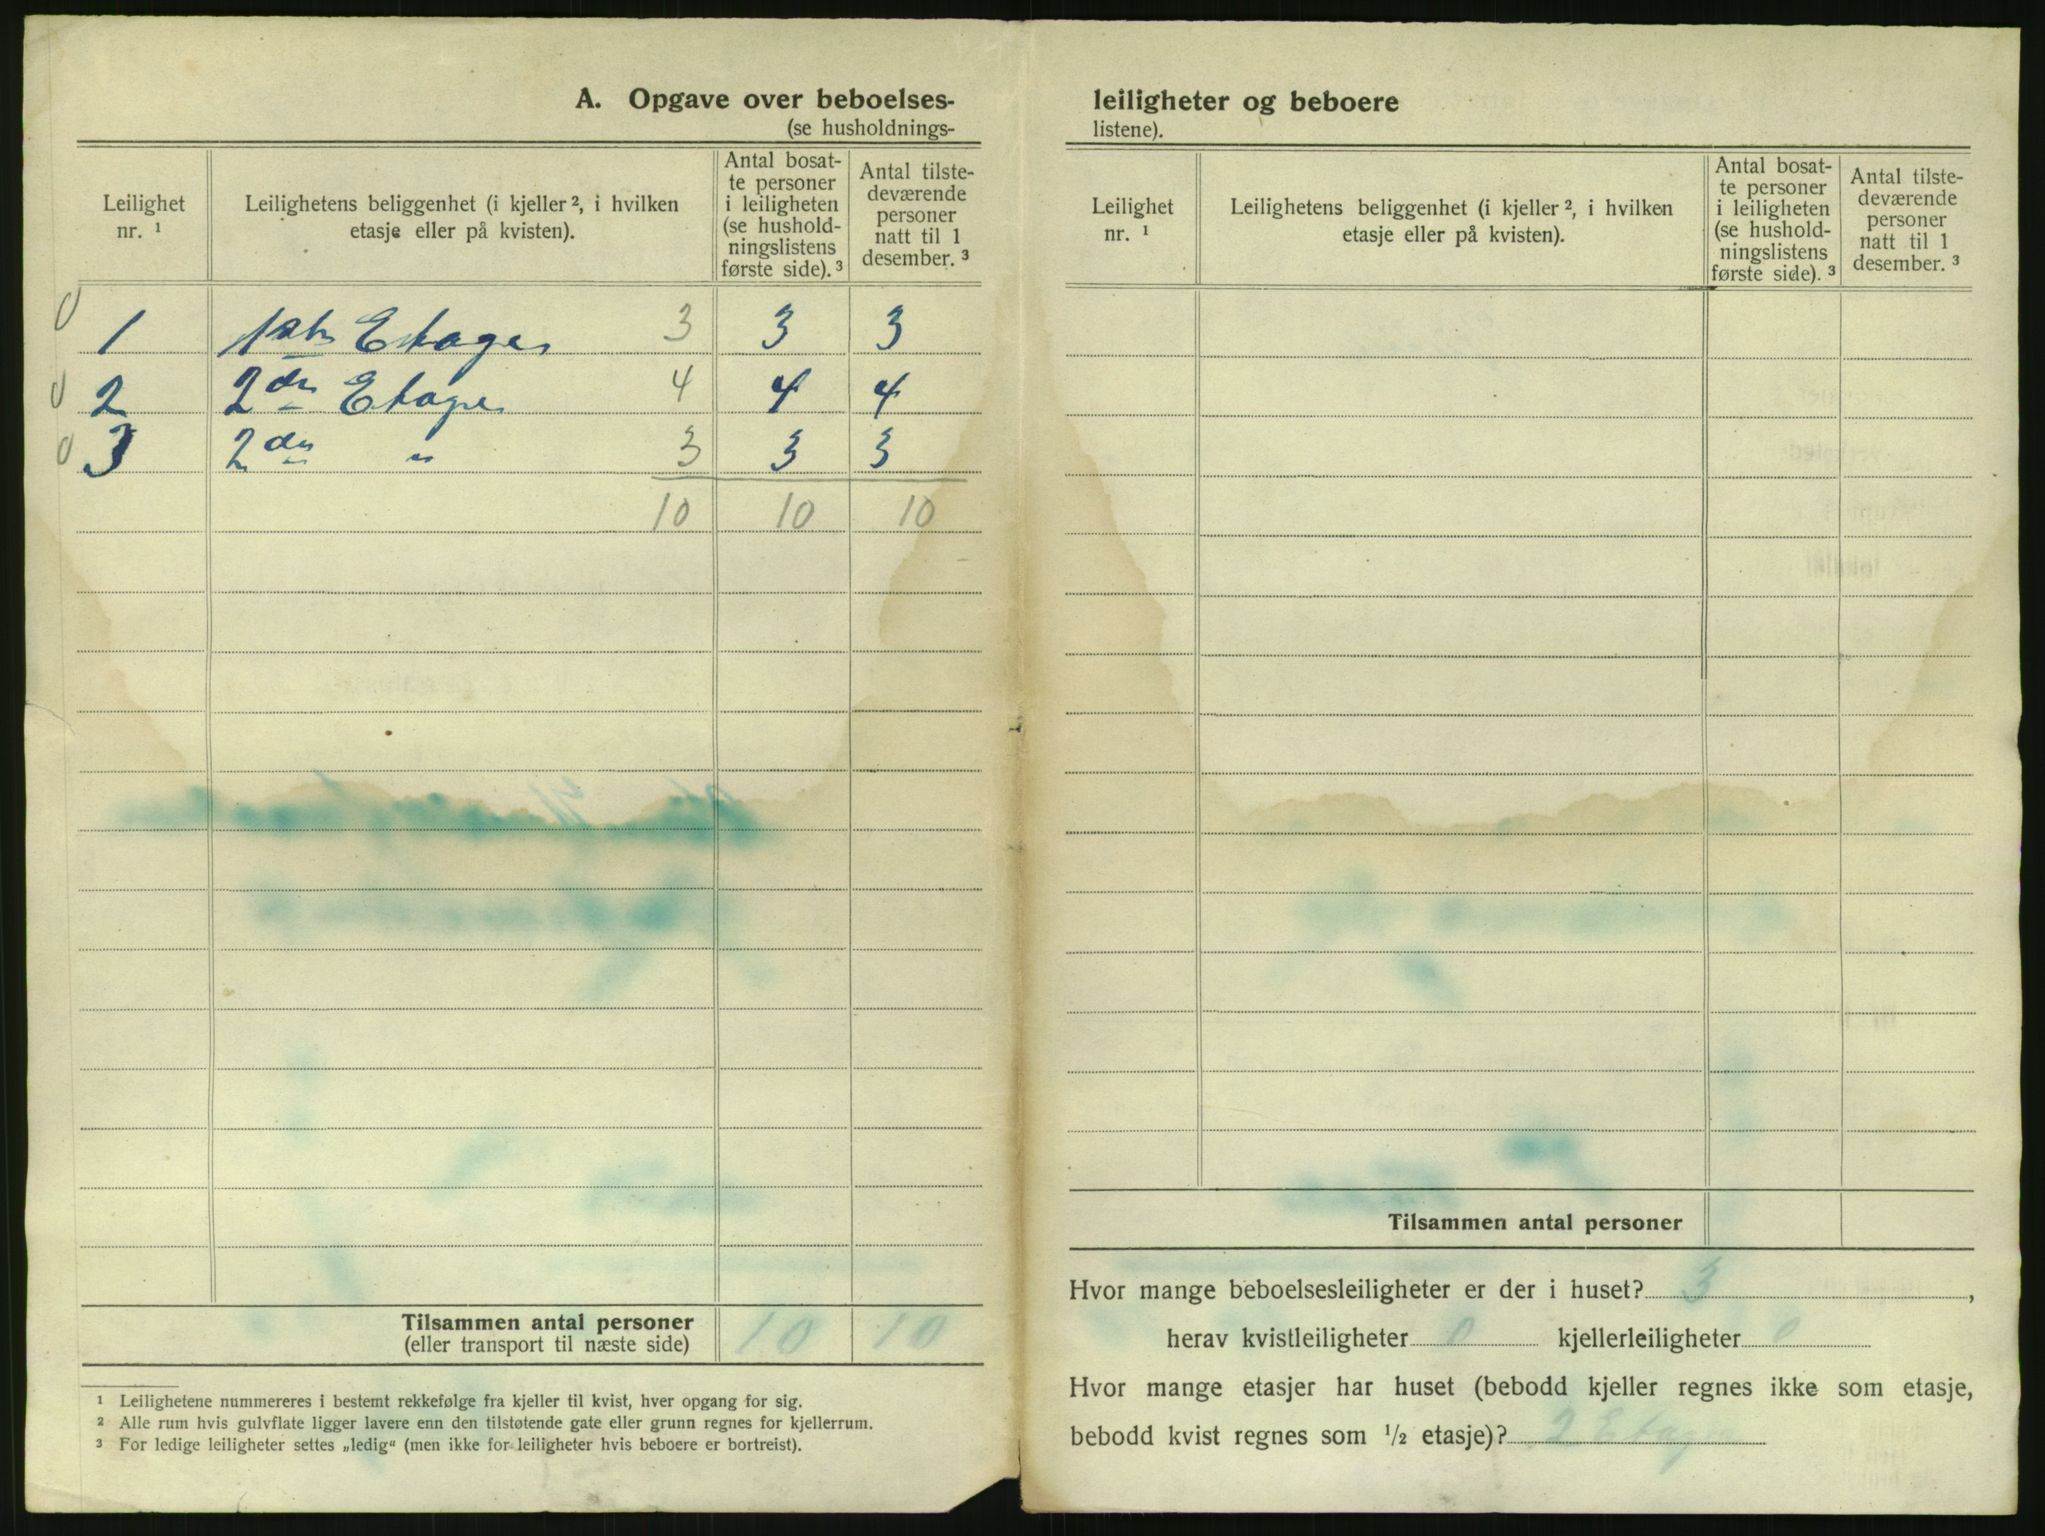 A. Opgave over beboelses-
(se husholdnings-
Leilighet nr. ¹
Leilighetens beliggenhet (i kjeller ², i hvilken etasje eller på kvisten).
Antal bosat-
te personer
i leiligheten
(se hushold-
ningslistens
første side). ³
Antal tilste-
deværende
personer
natt til 1
desember. ³
0 1 1ste Etage 3 3 3
0 2 2den Etage 4 4 4
0 3 2den " 3 3 3
10 10 10
Tilsammen antal personer 10 10
(eller transport til næste side)
¹ Leilighetene nummereres i bestemt rekkefølge fra kjeller til kvist, hver opgang for sig.
² Alle rum hvis gulvflate ligger lavere enn den tilstøtende gate eller grunn regnes for kjellerrum.
³ For ledige leiligheter settes „ledig“ (men ikke for leiligheter hvis beboere er bortreist).
leiligheter og beboere
listene).
Leilighet nr. ¹
Leilighetens beliggenhet (i kjeller ², i hvilken etasje eller på kvisten).
Antal bosat-
te personer
i leiligheten
(se hushold-
ningslistens
første side). ³
Antal tilste-
deværende
personer
natt til 1
desember. ³
Tilsammen antal personer
Hvor mange beboelsesleiligheter er der i huset? 3,
herav kvistleiligheter 0 kjellerleiligheter 0
Hvor mange etasjer har huset (bebodd kjeller regnes ikke som etasje,
bebodd kvist regnes som ½ etasje)? 2 Etager